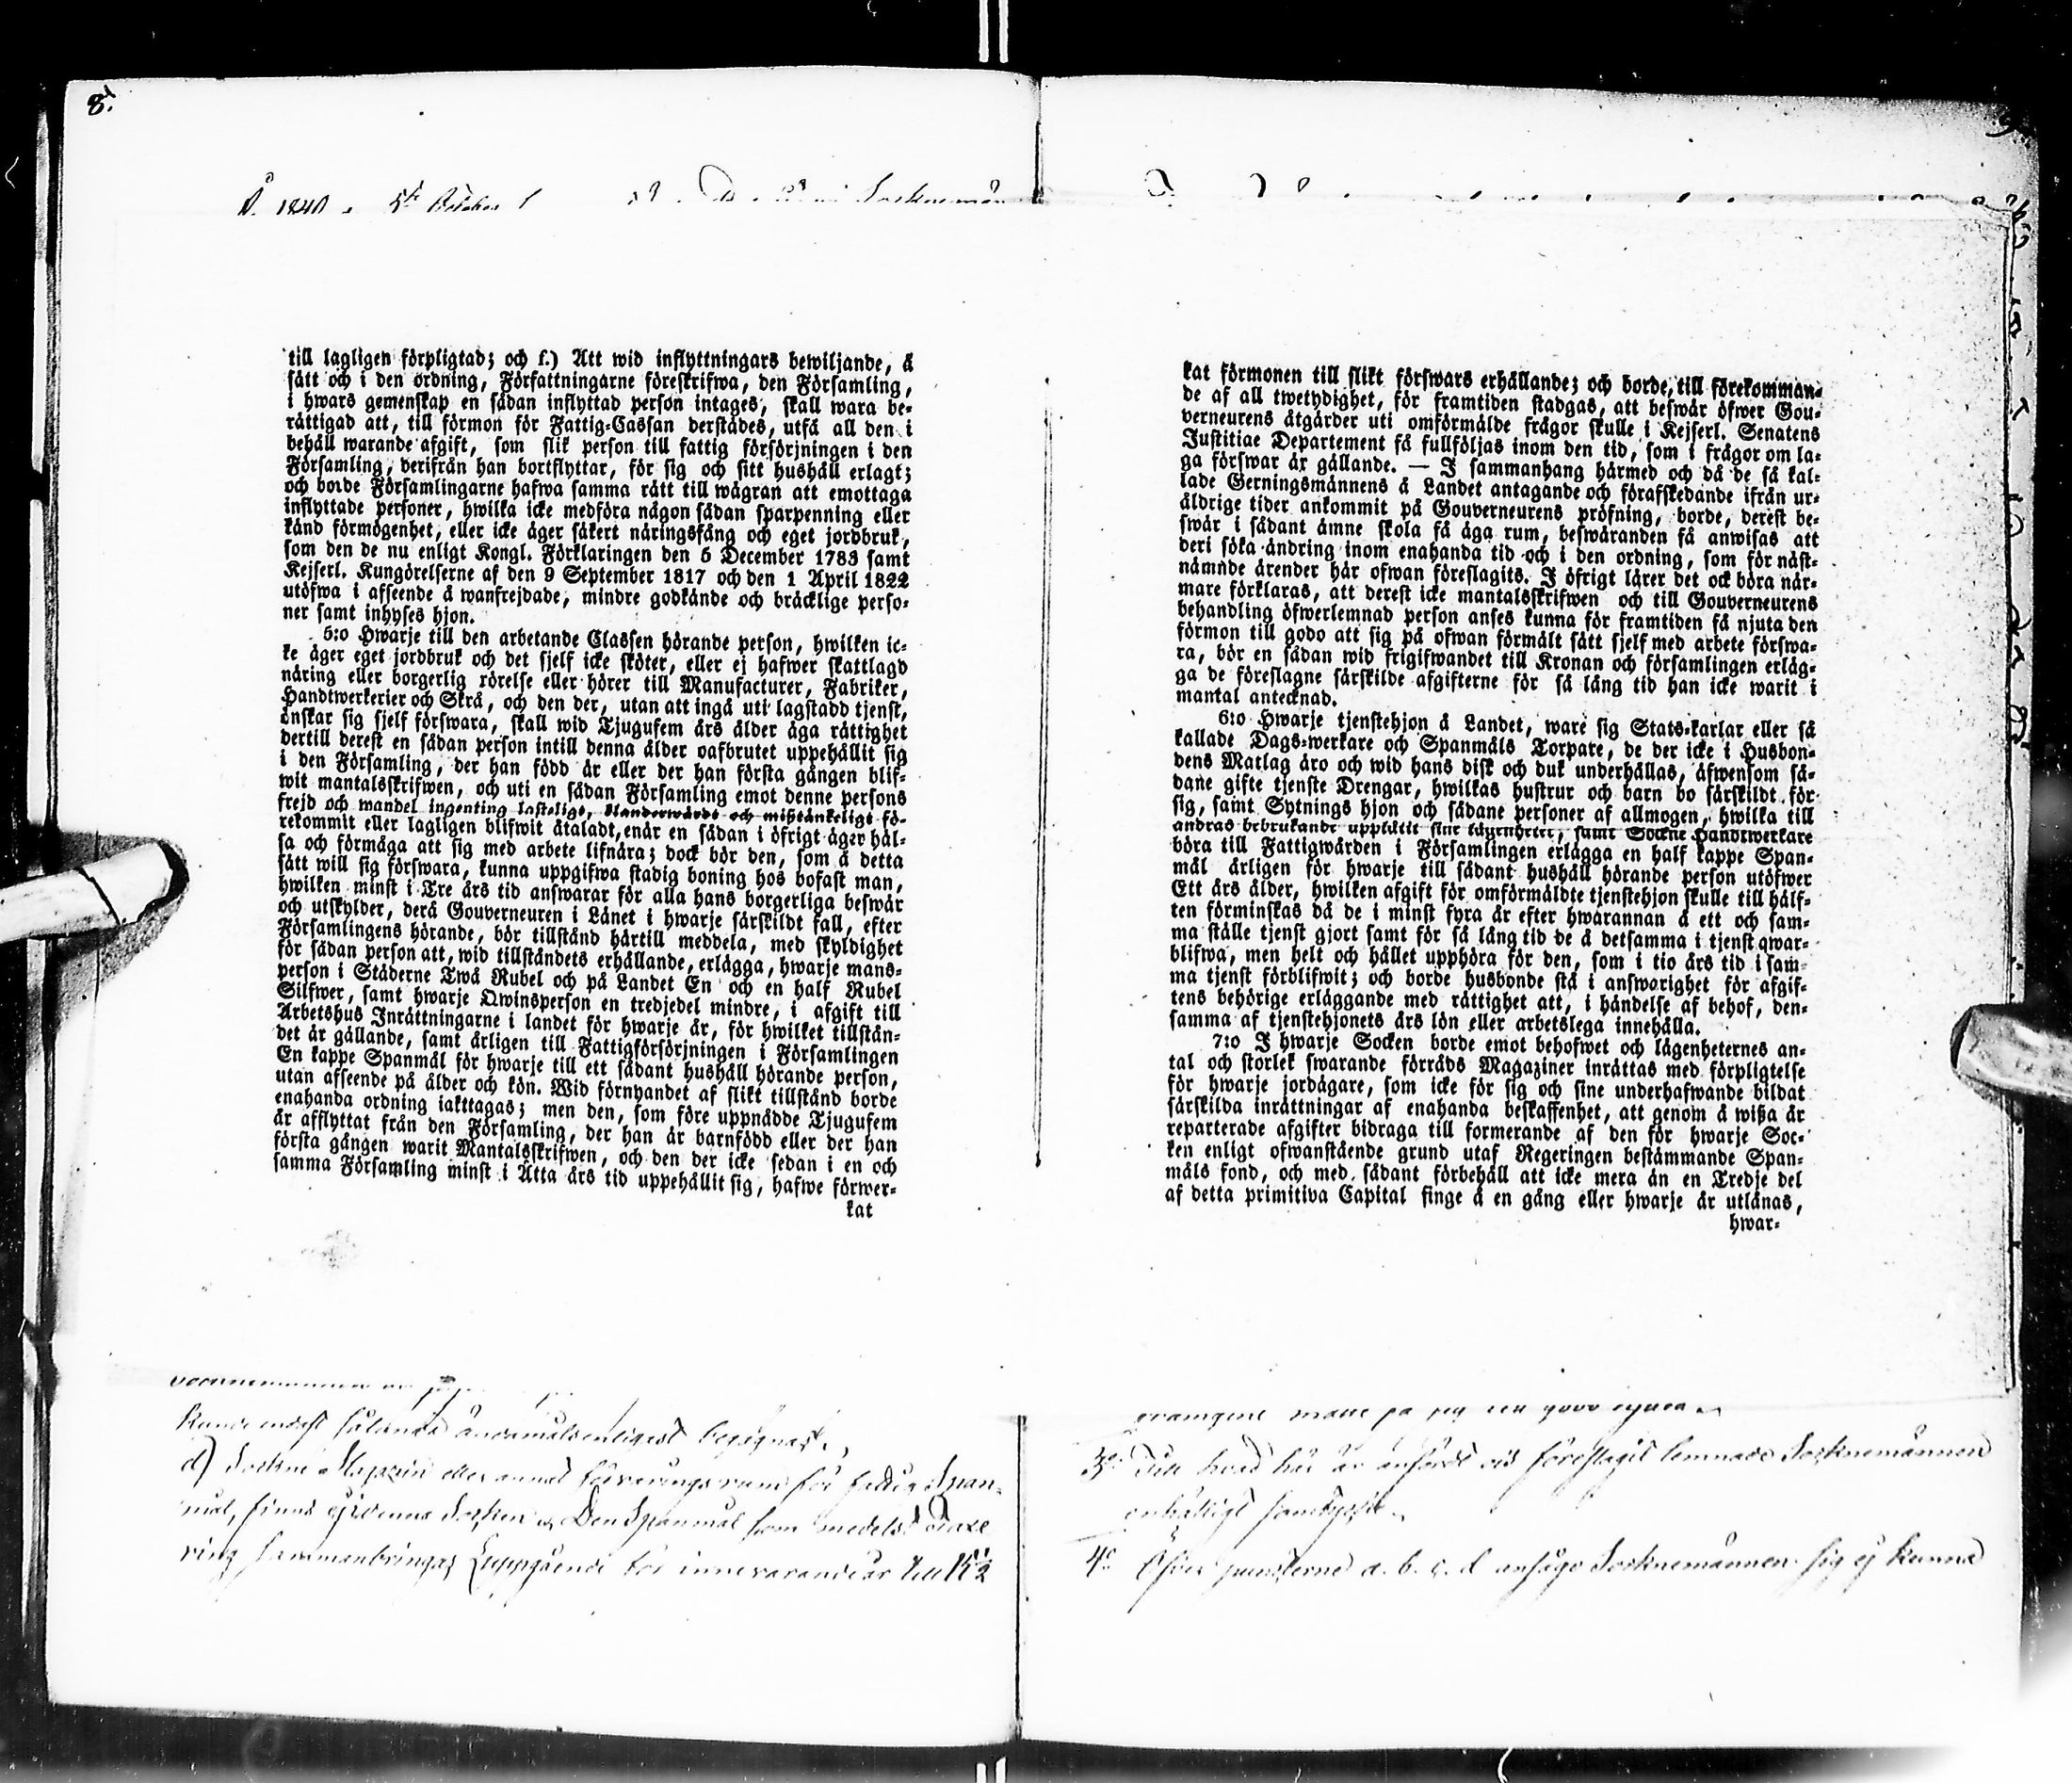 8.
Å. 1840 5te October Socknemän
till lagligen förpligtad; och f.) Att wid inflyttningars bewiljande, å
sätt och i den ordning, Författningarne föreskrifwa, den Församling,
i hwars gemenskap en sådan inflyttad person intages, skall wara be-
rättigad att, till förmon för Fattig-Cassan derstädes, utfå all den i
behåll warande afgift, som slik person till fattig försörjningen i den
Församling, derifrån han bortflyttar, för sig och sitt hushåll erlagt;
och borde Församlingarne hafwa samma rätt till wägran att emottaga
inflyttade personer, hwilka icke medföra någon sådan sparpenning eller
känd förmögenhet, eller icke äger säkert näringsfång och eget jordbruk,
som den de nu enligt Kongl. Förklaringen den 5 December 1783 samt
Kejserl. Kungörelserne af den 9 September 1817 och den 1 April 1822
utöfwa i afseende å wanfrejdade, mindre godkände och bräcklige perso-
ner samt inhyses hjon.
5:o Hwarje till den arbetande Classen hörande person, hwilken ic-
ke äger eget jordbruk och det sjelf icke sköter, eller ej hafwer skattlagd
näring eller borgerlig rörelse eller hörer till Manufacturer, Fabriker,
Handtwerkerier och Skrå, och den der, utan att ingå uti lagstadd tjenst,
önskar sig sjelf förswara, skall wid Tjugufem års ålder äga rättighet
dertill derest en sådan person intill denna ålder oafbrutet uppehållit sig
i den Församling, der han född är eller der han första gången blif-
wit mantalsskrifwen, och uti en sådan Församling emot denne persons
frejd och wandel ingenting lasteligt, klanderwärdt och mißtänkeligt fö-
rekommit eller lagligen blifwit åtaladt, enär en sådan i öfrigt äger häl-
sa och förmåga att sig med arbete lifnära; dock bör den, som å detta
sätt will sig förswara, kunna uppgifwa stadig boning hos bofast man,
hwilken minst i Tre års tid answarar för alla hans borgerliga beswär
och utskylder, derå Gouverneuren i Länet i hwarje särskildt fall, efter
Församlingens hörande, bör tillstånd härtill meddela, med skyldighet
för sådan person att, wid tillståndets erhållande, erlägga, hwarje mans-
person i Städerne Twå Rubel och på Landet En och en half Rubel
Silfwer, samt hwarje Qwinsperson en tredjedel mindre, i afgift till
Arbetshus Inrättningarne i landet för hwarje år, för hwilket tillstån-
det är gällande, samt årligen till Fattigförsörjningen i Församlingen
En kappe Spanmål för hwarje till ett sådant hushåll hörande person,
utan afseende på ålder och kön. Wid förnyandet af slikt tillstånd borde
enahanda ordning iakttagas; men den, som före uppnådde Tjugufem
år afflyttat från den Församling, der han är barnfödd eller der han
första gången warit Mantalsskrifwen, och den der icke sedan i en och
samma Församling minst i Åtta års tid uppehållit sig, hafwe förwer-
kat
kunde måst sålunda ändamålsenligast begagnas.
d) Sockne Magazin eller annat förvarings rum för fattig Span-
mål, finnes ej i denna Socken. Den Spanmål som medelst Taxe
ring sammanbringas uppgående för innevarande år till 15 1/2
9
kat förmonen till slikt förswars erhållande; och borde, till förekomman-
de af all twetydighet, för framtiden stadgas, att beswär öfwer Gou-
verneurens åtgärder uti omförmälde frågor skulle i Kejserl. Senatens
Justitiae Departement få fullföljas inom den tid, som i frågor om la-
ga förswar är gällande. — I sammanhang härmed och då de så kal-
lade Gerningsmännens å Landet antagande och förafskedande ifrån ur-
äldrige tider ankommit på Gouverneurens pröfning, borde, derest be-
swär i sådant ämne skola få äga rum, beswäranden få anwisas att
deri söka ändring inom enahanda tid och i den ordning, som för näst-
nämnde ärender här ofwan föreslagits. I öfrigt lärer det ock böra när-
mare förklaras, att derest icke mantalsskrifwen och till Gouverneurens
behandling öfwerlemnad person anses kunna för framtiden få njuta den
förmon till godo att sig på ofwan förmält sätt sjelf med arbete förswa-
ra, bör en sådan wid frigifwandet till Kronan och församlingen erläg-
ga de föreslagne särskilde afgifterne för så lång tid han icke warit i
mantal antecknad.
6:o Hwarje tjenstehjon å Landet, ware sig Stats-karlar eller så
kallade Dags-werkare och Spanmåls Torpare, de der icke i Husbon-
dens Matlag äro och wid hans disk och duk underhållas, äfwensom så-
dane gifte tjenste Drengar, hwilkas hustrur och barn bo särskildt för
sig, samt Sytnings hjon och sådane personer af allmogen, hwilka till
andras bebrukande upplåtit sine lägenheter, samt Sockne Handtwerkare
böra till Fattigwården i Församlingen erlägga en half kappe Span-
mål årligen för hwarje till sådant hushåll hörande person utöfwer
Ett års ålder, hwilken afgift för omförmäldte tjenstehjon skulle till hälf-
ten förminskas då de i minst fyra år efter hwarannan å ett och sam-
ma ställe tjenst gjort samt för så lång tid de å detsamma i tjenst qwar-
blifwa, men helt och hållet upphöra för den, som i tio års tid i sam-
ma tjenst förblifwit; och borde husbonde stå i answarighet för afgif-
tens behörige erläggande med rättighet att, i händelse af behof, den-
samma af tjenstehjonets års lön eller arbetslega innehålla.
7:o I hwarje Socken borde emot behofwet och lägenheternes an-
tal och storlek swarande förråds Magaziner inrättas med förpligtelse
för hwarje jordägare, som icke för sig och sine underhafwande bildat
särskilda inrättningar af enahanda beskaffenhet, att genom å wißa år
reparterade afgifter bidraga till formerande af den för hwarje Soc-
ken enligt ofwanstående grund utaf Regeringen bestämmande Span-
måls fond, och med sådant förbehåll att icke mera än en Tredje del
af detta primitiva Capital finge å en gång eller hwarje år utlånas,
hwar-
3o Till hvad här är anfördt och föreslagit lemnade Socknemännen
enhälligt samtycke.
4o Öfver puncterne a. b. c. d ansågo Socknemännen sig ej kunna